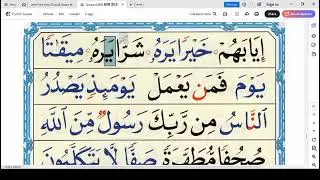 إِيَابَهُمْ خَيْرًا يَرَهُ شَرًّا يَرَهُ مِيقَاتًا
يَوْمَ فَمَن يَعْمَلْ يَوْمَئِذٍ يَصْدُرُ
النَّاسُ مِن رَّبِّكَ رَسُولٌ مِّنَ اللهِ
صُحُفًا مُّطَهَّرَةً صَفًّا لَّا يَتَكَلَّمُونَ